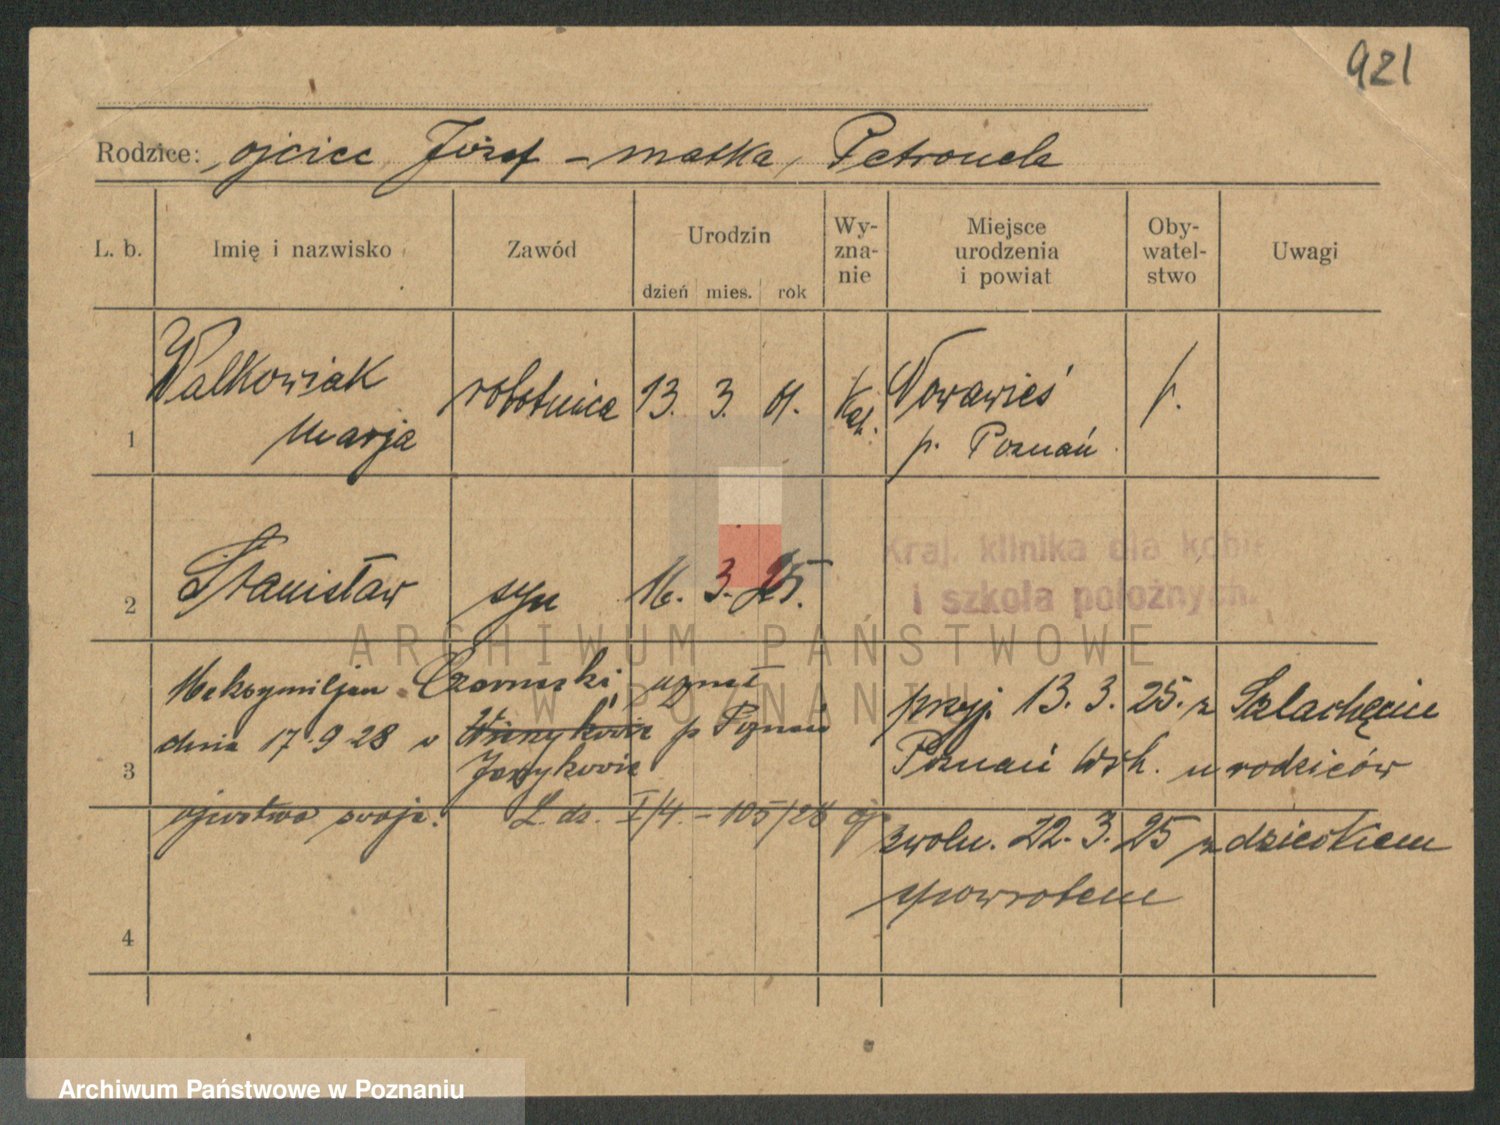 921
Rodzice: ojciec Józef – matka, Petronela
L. b. Imię i nazwisko Zawód Urodzin Wy-zna-nie Miejsce urodzenia i powiat Oby-watel-stwo Uwagi
dzień mies. rok
1 Walkowiak Marja robotnica 13. 3. 01. Kat. Nowawieś p. Poznań p.
2 Stanisław syn 16. 3. 25.
Kraj. klinika dla kobiet
i szkoła położnych.
ARCHIWUM PAŃSTWOWE
W POZNANIU
3 Maksymiljan Czarneski, uznał
dnia 17.9.28 v p Poznań
Jeżykowie
ojcostwo swoje. L. dz. I/4. – 105/28
przyj. 13. 3. 25. z Szlachęcin
Poznań Wsch. u rodziców
zwoln. 22. 3. 25 z dzieckiem
spowrotem
4
Archiwum Państwowe w Poznaniu